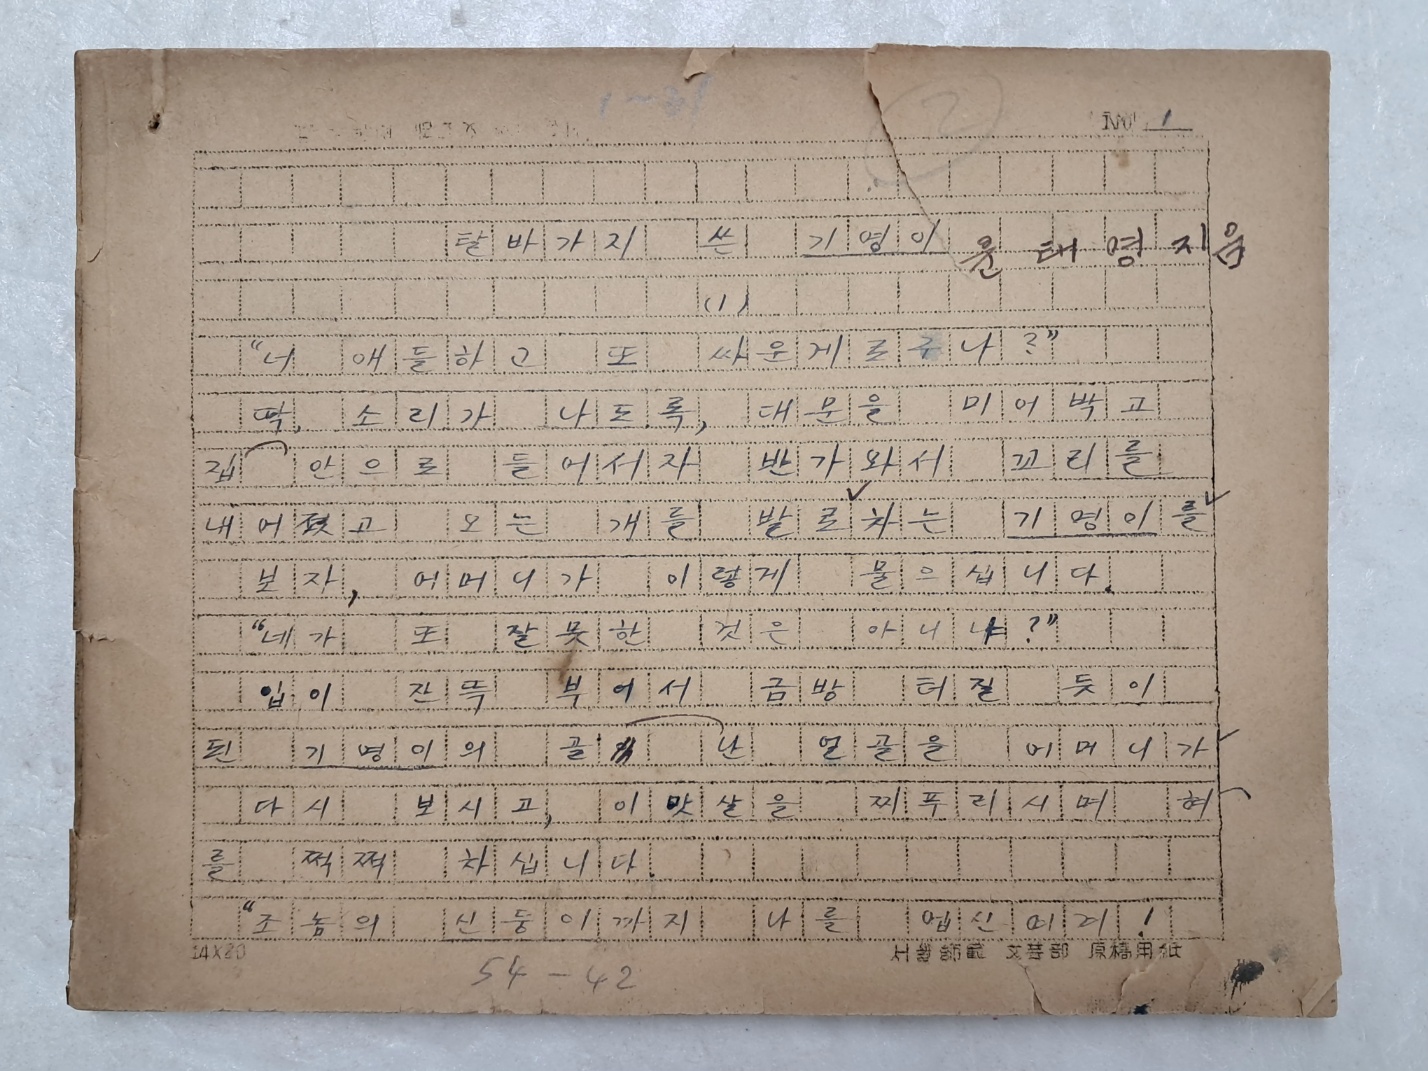 No. 1
탈바가지 쓴 기영이 윤태명 지음
(1)
"너 애들하고 또 싸운게로구나?"
딱, 소리가 나도록, 대문을 미어박고
집 안으로 들어서자 반가와서 꼬리를
내어젔고 오는 개를 발로 차는 기영이를
보자, 어머니가 이렇게 물으십니다.
"네가 또 잘못한 것은 아니냐?"
입이 잔뜩 부어서 금방 터질 듯이
된 기영이의 골난 얼골을 어머니가
다시 보시고, 이맛살을 찌푸리시며 혀
를 쩍쩍 차십니다.
"조놈의 신둥이까지 나를 업신여겨!
14X20
文芸部 原稿用紙
54-42